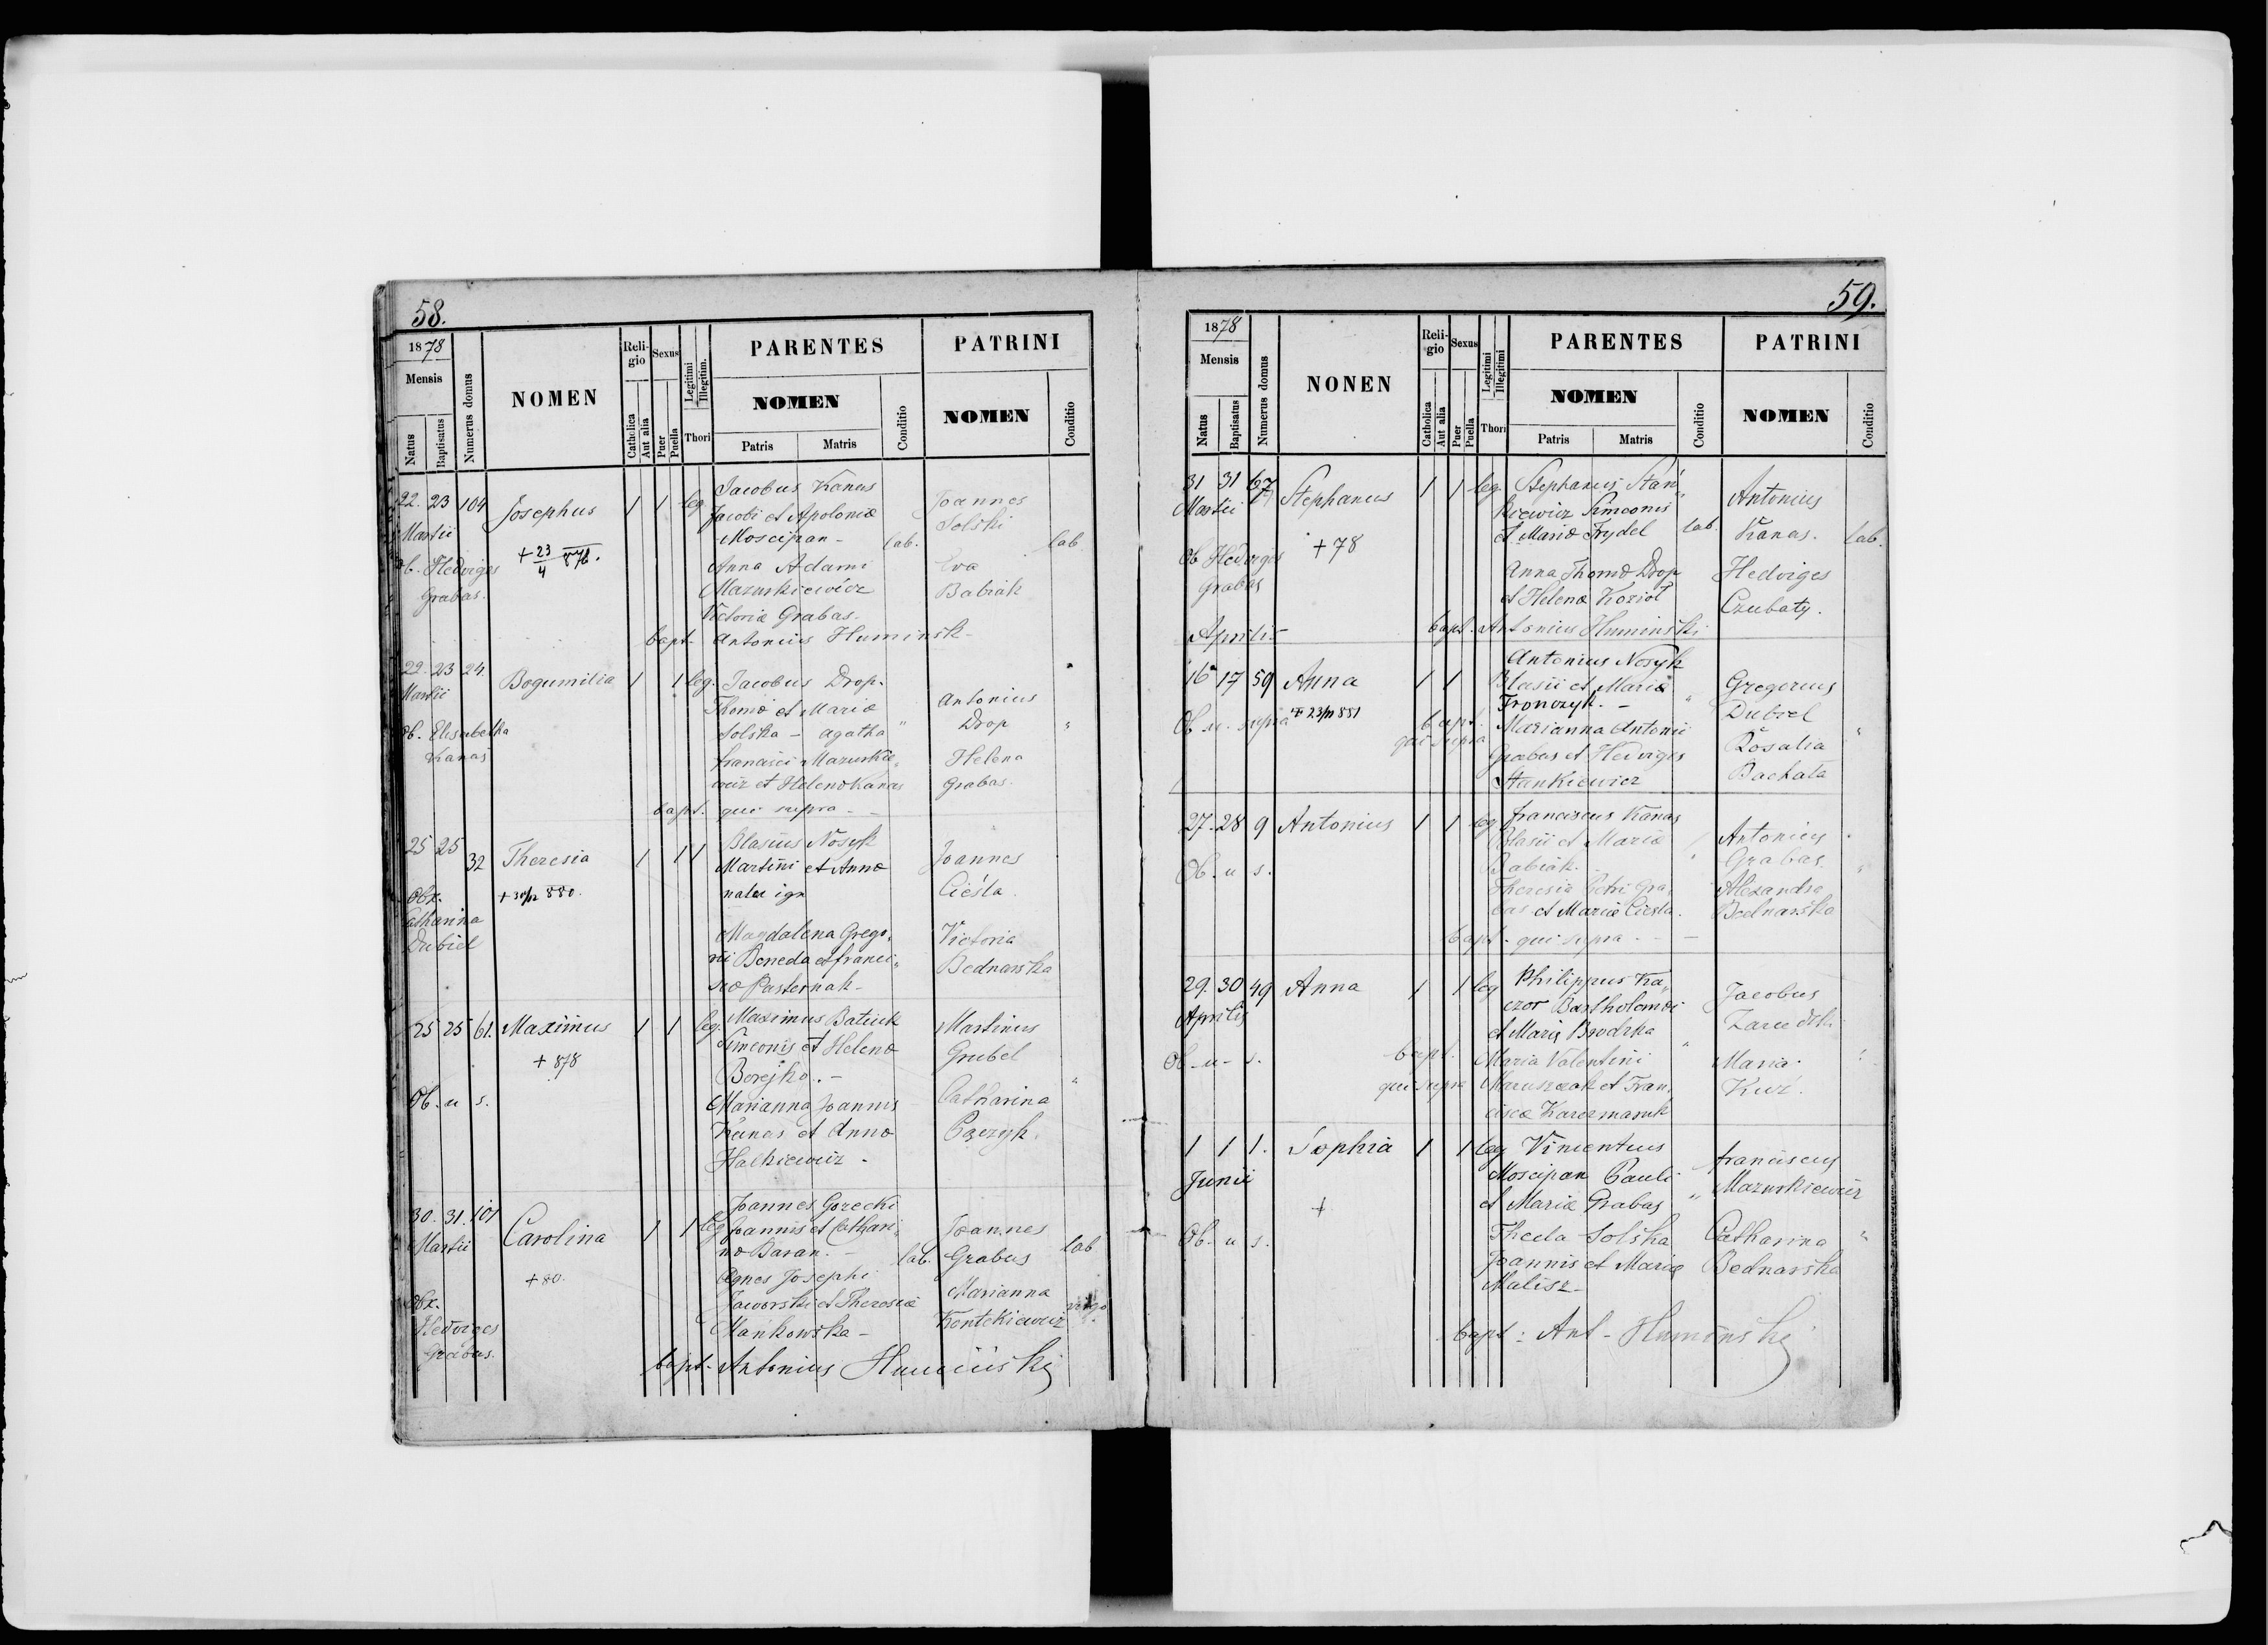 58.
1878
Mensis
Natus
Baptisatus
Numerus domus
NOMEN
Religio
Catholica
Aut alia
Sexus
Puer
Puella
Legitimi
Illegitim.
Thori
PARENTES
NOMEN
Patris
Matris
Conditio
PATRINI
NOMEN
Conditio
22. 23 104 Josephus 1 1 leg.
Martii
+ 23/4 878.
Ob. Hedviges
Grabas.
Jacobus Kanas
Jacobi et Apoloniæ
Moscipan - lab.
Anna Adami
Mazurkiewicz
Victoriæ Grabas.
Joannes
Solski
lab
Eva
Babiak
bapt. Antonius Huminsk-
22. 23 24. Bogumilia 1 1 leg.
Martii
Ob. Elisabetha
Kanas
Jacobus Drop.
Thomæ et Mariæ
Solska - Agatha "
Francisci Mazurkie„
wicz et Helenæ Kanas
Antonius
Drop "
Helena
Grabas.
bapt. qui supra -
25 25 32 Theresia 1 1 1
+ 30/12 880.
Obx.
Catharina
Dubiel
Blasius Nosyk
Martini et Annæ
natu ign
Magdalena Grego„
rii Beneda et Franci„
scæ Pasternak-
Joannes
Cieśla.
Victoria
Bednarska
25 25 61. Maximus 1 1 leg.
+ 878
Ob. u s.
Maximus Batiuk
Simeonis et Helenæ
Borejko. -
Marianna Joannis
Kanas et Annæ
Halkiewicz -
Martinus
Grubel
Catharina "
30. 31. 101 Carolina 1 1 leg
Martii
+ 80.
Obx.
Hedviges
Grabas.
Joannes Gorecki
Joannis et Cathari„
næ Baran. - lab.
Agnes Josephi
Jaworski et Theresiæ
Mankowska -
Joannes
Grabus lab
Marianna
Kontekiewicz virgo.
bapt. Antonius Humiński
59.
1878
Mensis
Natus
Baptisatus
Numerus domus
NONEN
Religio
Catholica
Aut alia
Sexus
Puer
Puella
Legitimi
Illegitimi
Thori
PARENTES
NOMEN
Patris
Matris
Conditio
PATRINI
NOMEN
Conditio
31 31 67 Stephanus 1 1 leg.
Martii
+ 78
Ob Hedviges
Grabas
Stephanus Stan„
kiewicz Simeonis
et Mariæ Frydel lab.
Anna Thomæ Drop
et Helenæ Kozioł
Antonius
Kanas. lab.
Hedviges
Czubaty.
bapt. Antonius Huminski
Aprilis
16 17 59 Anna 1 1
Ob u. supra + 23/11 881
Antonius Nosyk
Blasii et Mariæ
Fronczyk. - "
Marianna Antonii
Grabas et Hedviges
Stankiewicz
bapt.
qui supra
Gregorius
Dubiel
Rosalia "
Bachata
27. 28 9 Antonius 1 1 leg
Ob. u s.
Franciscus Kanas
Blasii et Mariæ
Babiak. "
Theresia Petri Gra„
bas et Mariæ Ciesla.
Antonius
Grabas. "
Alexandra
Bednarska
bapt. qui supra. -
29. 30 49 Anna 1 1 leg
Aprilis
Ob - u - s.
Philippus Ka„
czor Bartholomæi
et Mariæ Brodzka "
Maria Valentini
Maruszczak et Fran„
ciscæ Karczmaruk
bapt.
qui supra
Jacobus
Maria.
Kuź.
1 1 1. Sophia 1 1 leg
Junii
+
Ob. u s.
Vincentius
Moscipan Pauli
et Mariæ Grabas "
Thecla Solska
Joannis et Mariæ
Malisz-
Franciscus
Mazurkiewicz
Catharina "
Bednarska
bapt: Ant - Huminski